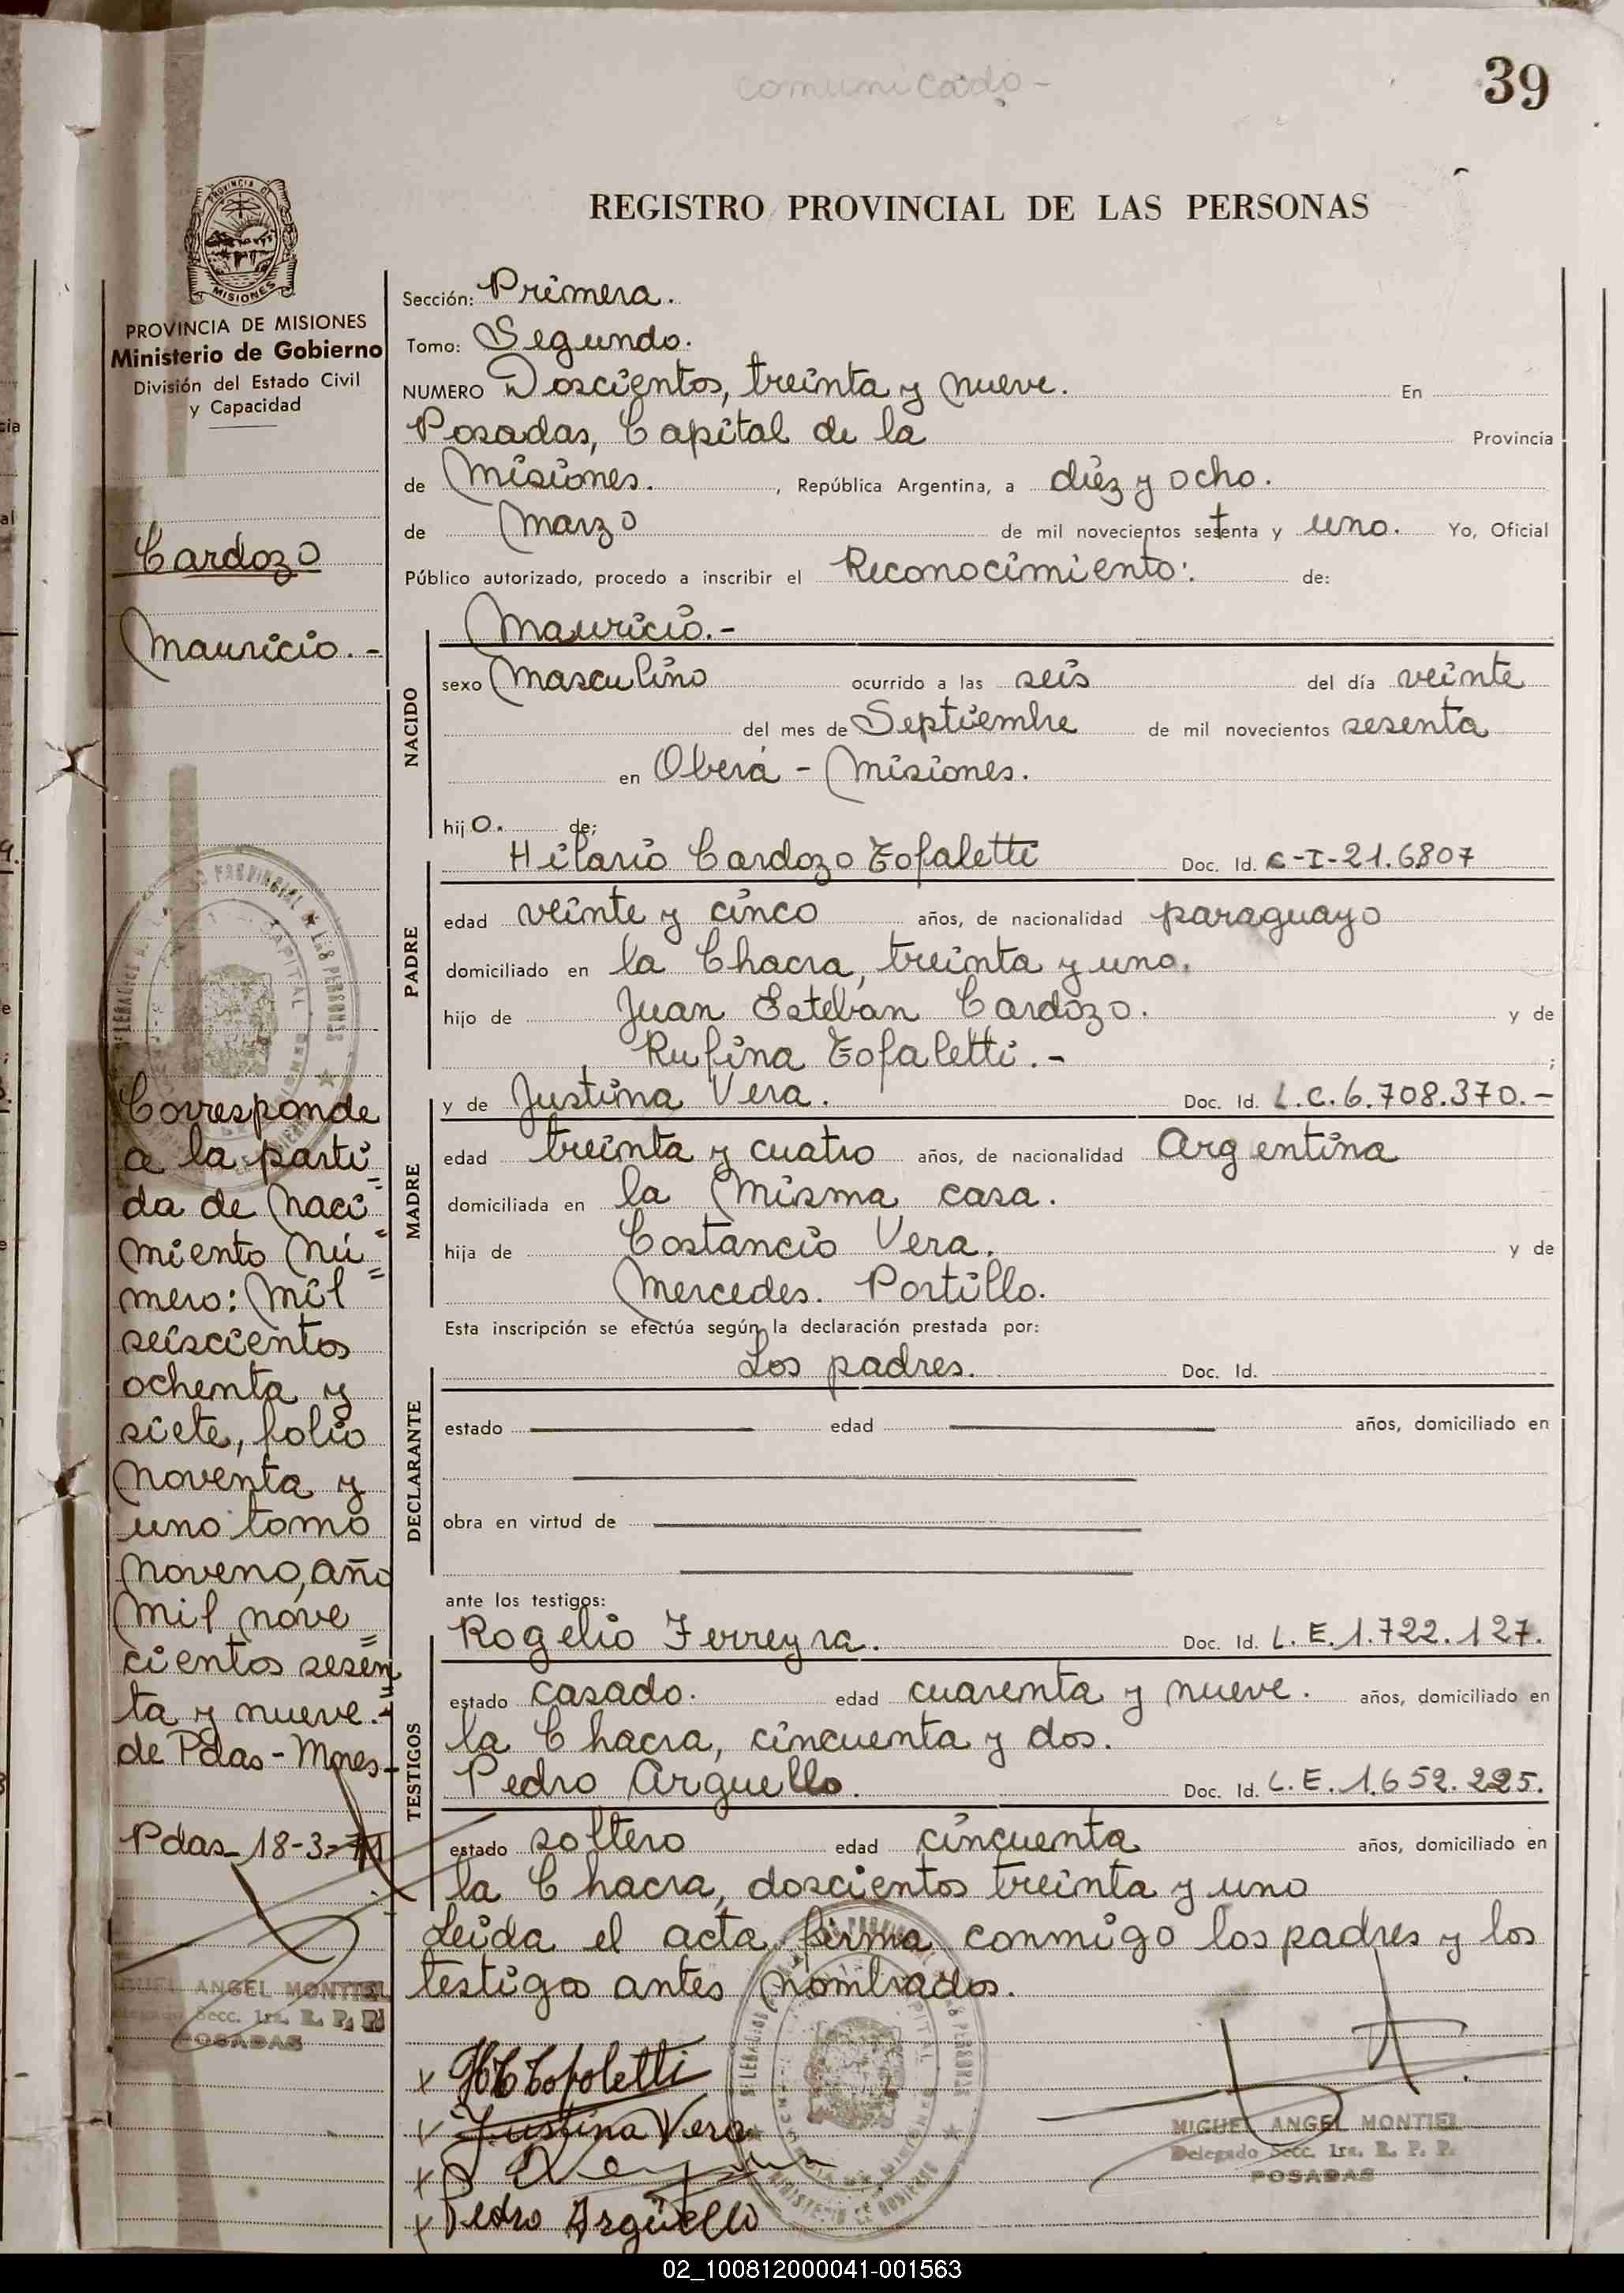 comunicado -
39
PROVINCIA DE
MISIONES
PROVINCIA DE MISIONES
Ministerio de Gobierno
División del Estado Civil
y Capacidad
Cardozo
Mauricio. -
Corresponde
a la parti
da de naci=
miento nú=
mero: mil=
seiscientos
ochenta y
siete, folio
noventa y
uno tomo
noveno, año
mil nove=
cientos sesen
ta y nueve.-
de Pdas - Mnes-
Pdas - 18-3-71
MIGUEL ANGEL MONTIEL
Delegado Secc. 1ra. R. P. P.
POSADAS
REGISTRO PROVINCIAL DE LAS PERSONAS
Sección: Primera.
Tomo: Segundo.
NUMERO Doscientos, treinta y nueve. En
Posadas, Capital de la Provincia
de Misiones. , República Argentina, a diez y ocho.
de Marzo de mil novecientos setenta y uno. Yo, Oficial
Público autorizado, procedo a inscribir el Reconocimiento: de:
NACIDO
Mauricio.-
sexo Masculino ocurrido a las seis del día veinte
del mes de Septiembre de mil novecientos sesenta
en Oberá - Misiones.
hijo. de;
PADRE
Hilario Cardozo Tofaletti Doc. Id. C-I-21.6807
edad veinte y cinco años, de nacionalidad paraguayo
domiciliado en la Chacra, treinta y uno.
hijo de Juan Esteban Cardozo. y de
Rufina Tofaletti.- ;
MADRE
y de Justina Vera. Doc. Id. L.C.6.708.370.-
edad treinta y cuatro años, de nacionalidad Argentina
domiciliada en la misma casa.
hija de Costancio Vera. y de
Mercedes. Portillo.
Esta inscripción se efectúa según la declaración prestada por:
DECLARANTE
Los padres. Doc. Id.
estado edad años, domiciliado en
obra en virtud de
ante los testigos:
TESTIGOS
Rogelio Ferreyra. Doc. Id. L.E.1.722.127.
estado casado. edad cuarenta y nueve. años, domiciliado en
la Chacra, cincuenta y dos.
Pedro Arguello. Doc. Id. L.E.1.652.225.
estado soltero edad cincuenta años, domiciliado en
la Chacra, doscientos treinta y uno
Leida el acta, firma conmigo los padres y los
testigos antes nombrados.
x HC Tofoletti
x Justina Vera
x
x Pedro Argüello
MIGUEL ANGEL MONTIEL
Delegado Secc. 1ra. R. P. P.
POSADAS
02_100812000041-001563